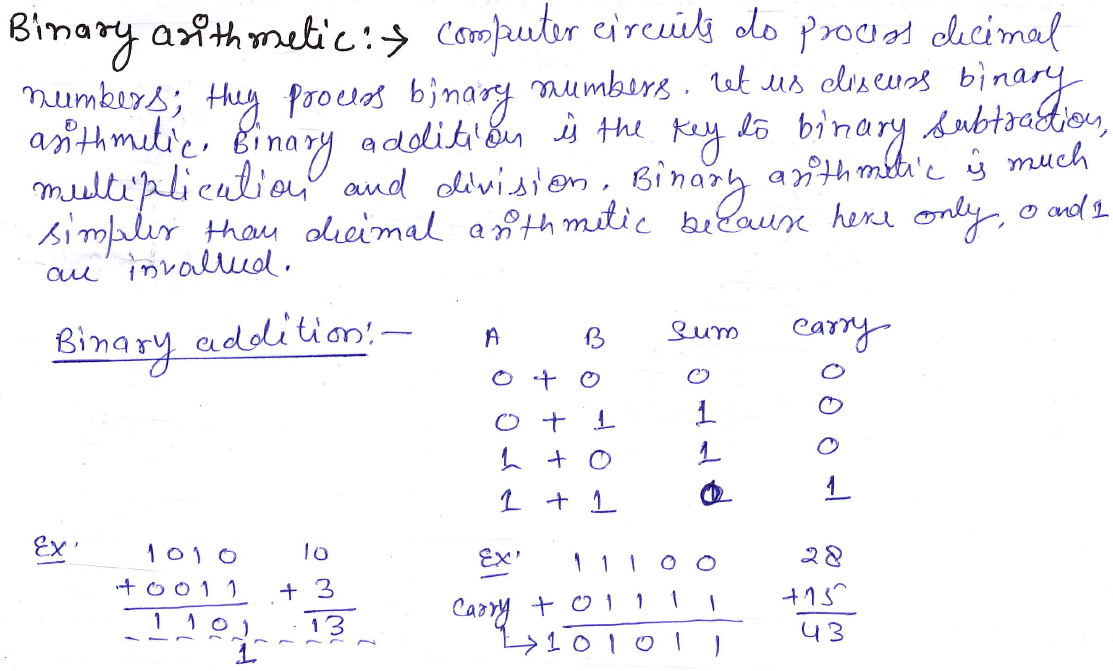 Binary arithmetic:→ Computer circuits do process decimal
numbers; they process binary numbers. Let us discuss binary
arithmetic. Binary addition is the key to binary subtraction,
multiplication and division. Binary arithmetic is much
simpler than decimal arithmetic because here only, 0 and 1
are invallued.
Binary addition:— A B Sum Carry
0 + 0 0 0
0 + 1 1 0
1 + 0 1 0
1 + 1 0 1
Ex. 1010 10 Ex. 11100 28
+0011 + 3 Carry + 01111 +15
1101 13 ↳101011 43
1